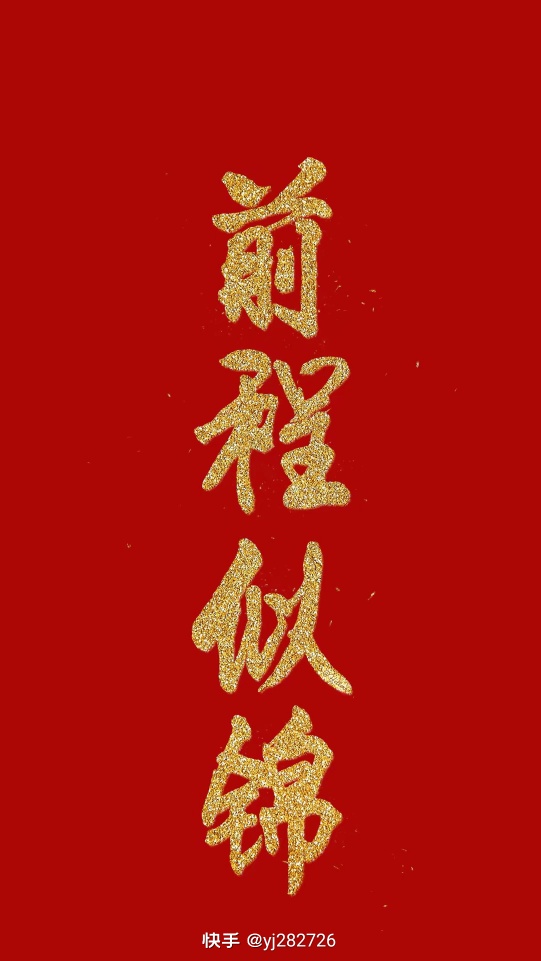 前程似锦
快手 @yj282726